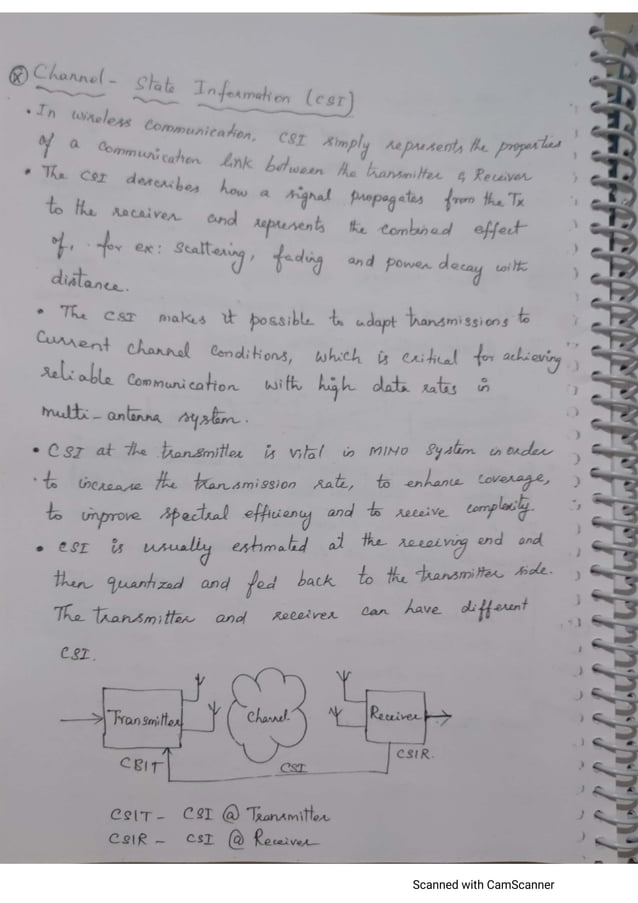 Channel - State Information (CSI)
• In wireless communication, CSI simply represents the properties
of a communication link between the transmitter & Receiver
• The CSI describes how a signal propagates from the Tx
to the receiver and represents the combined effect
of, for ex: scattering, fading and power decay with
distance.
• The CSI makes it possible to adapt transmissions to
current channel conditions, which is critical for achieving
reliable communication with high data rates in
multi-antenna system.
• CSI at the transmitter is vital in MIMO system in order
to increase the transmission rate, to enhance coverage,
to improve spectral efficiency and to receive complexity.
• CSI is usually estimated at the receiving end and
then quantized and fed back to the transmitter side.
The transmitter and receiver can have different
CSI.
Transmitter Channel Receiver
CSIT CSI CSIR.
CSIT - CSI @ Transmitter
CSIR - CSI @ Receiver
Scanned with CamScanner